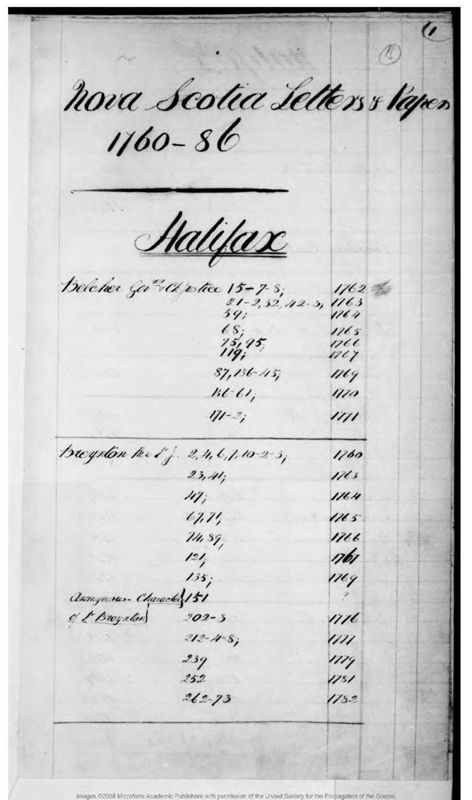 1
11
Nova Scotia Letters & Papers
1760-86
Halifax
Belcher Govr & Ch Justice 15-7-8; 1762
21-2, 32, 42-3; 1763
59; 1764
68; 1765
75, 95; 1766
119; 1767
87, 136-45; 1769
156-61; 1770
171-2; 1771
Breynton Rev Dr J. 2, 4, 6, 7, 10-2-3; 1760
23, 41; 1763
47; 1764
67, 71, 1765
74, 89, 1766
121, 1761
135; 1769
Anonymous Character 151 ?
of Dr Breynton 202-3 1776
212-4-8; 1777
239 1779
252 1781
262-73 1782
Images ©2008 Microform Academic Publishers with permission of the United Society for the Propagation of the Gospel